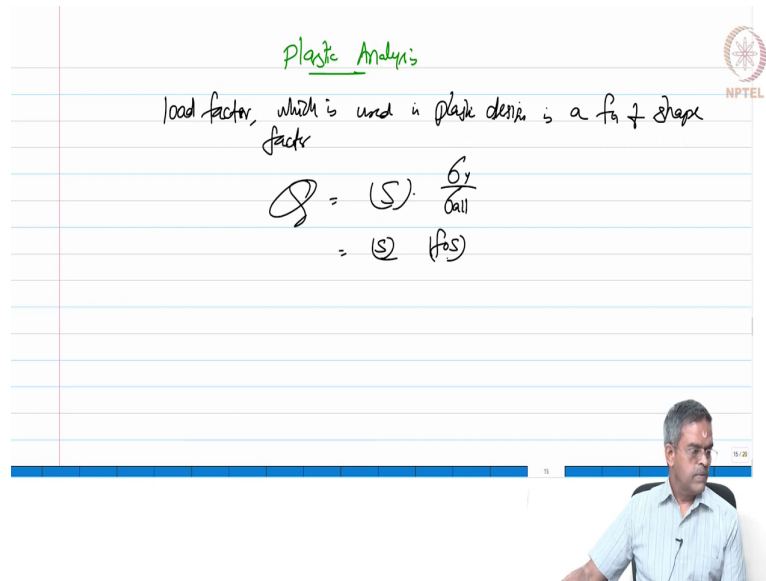 Plastic Analysis
NPTEL
load factor, which is used in plastic design is a fn of shape
factor
= (S). σy/σall
= (S) (fos)
15
15 / 20